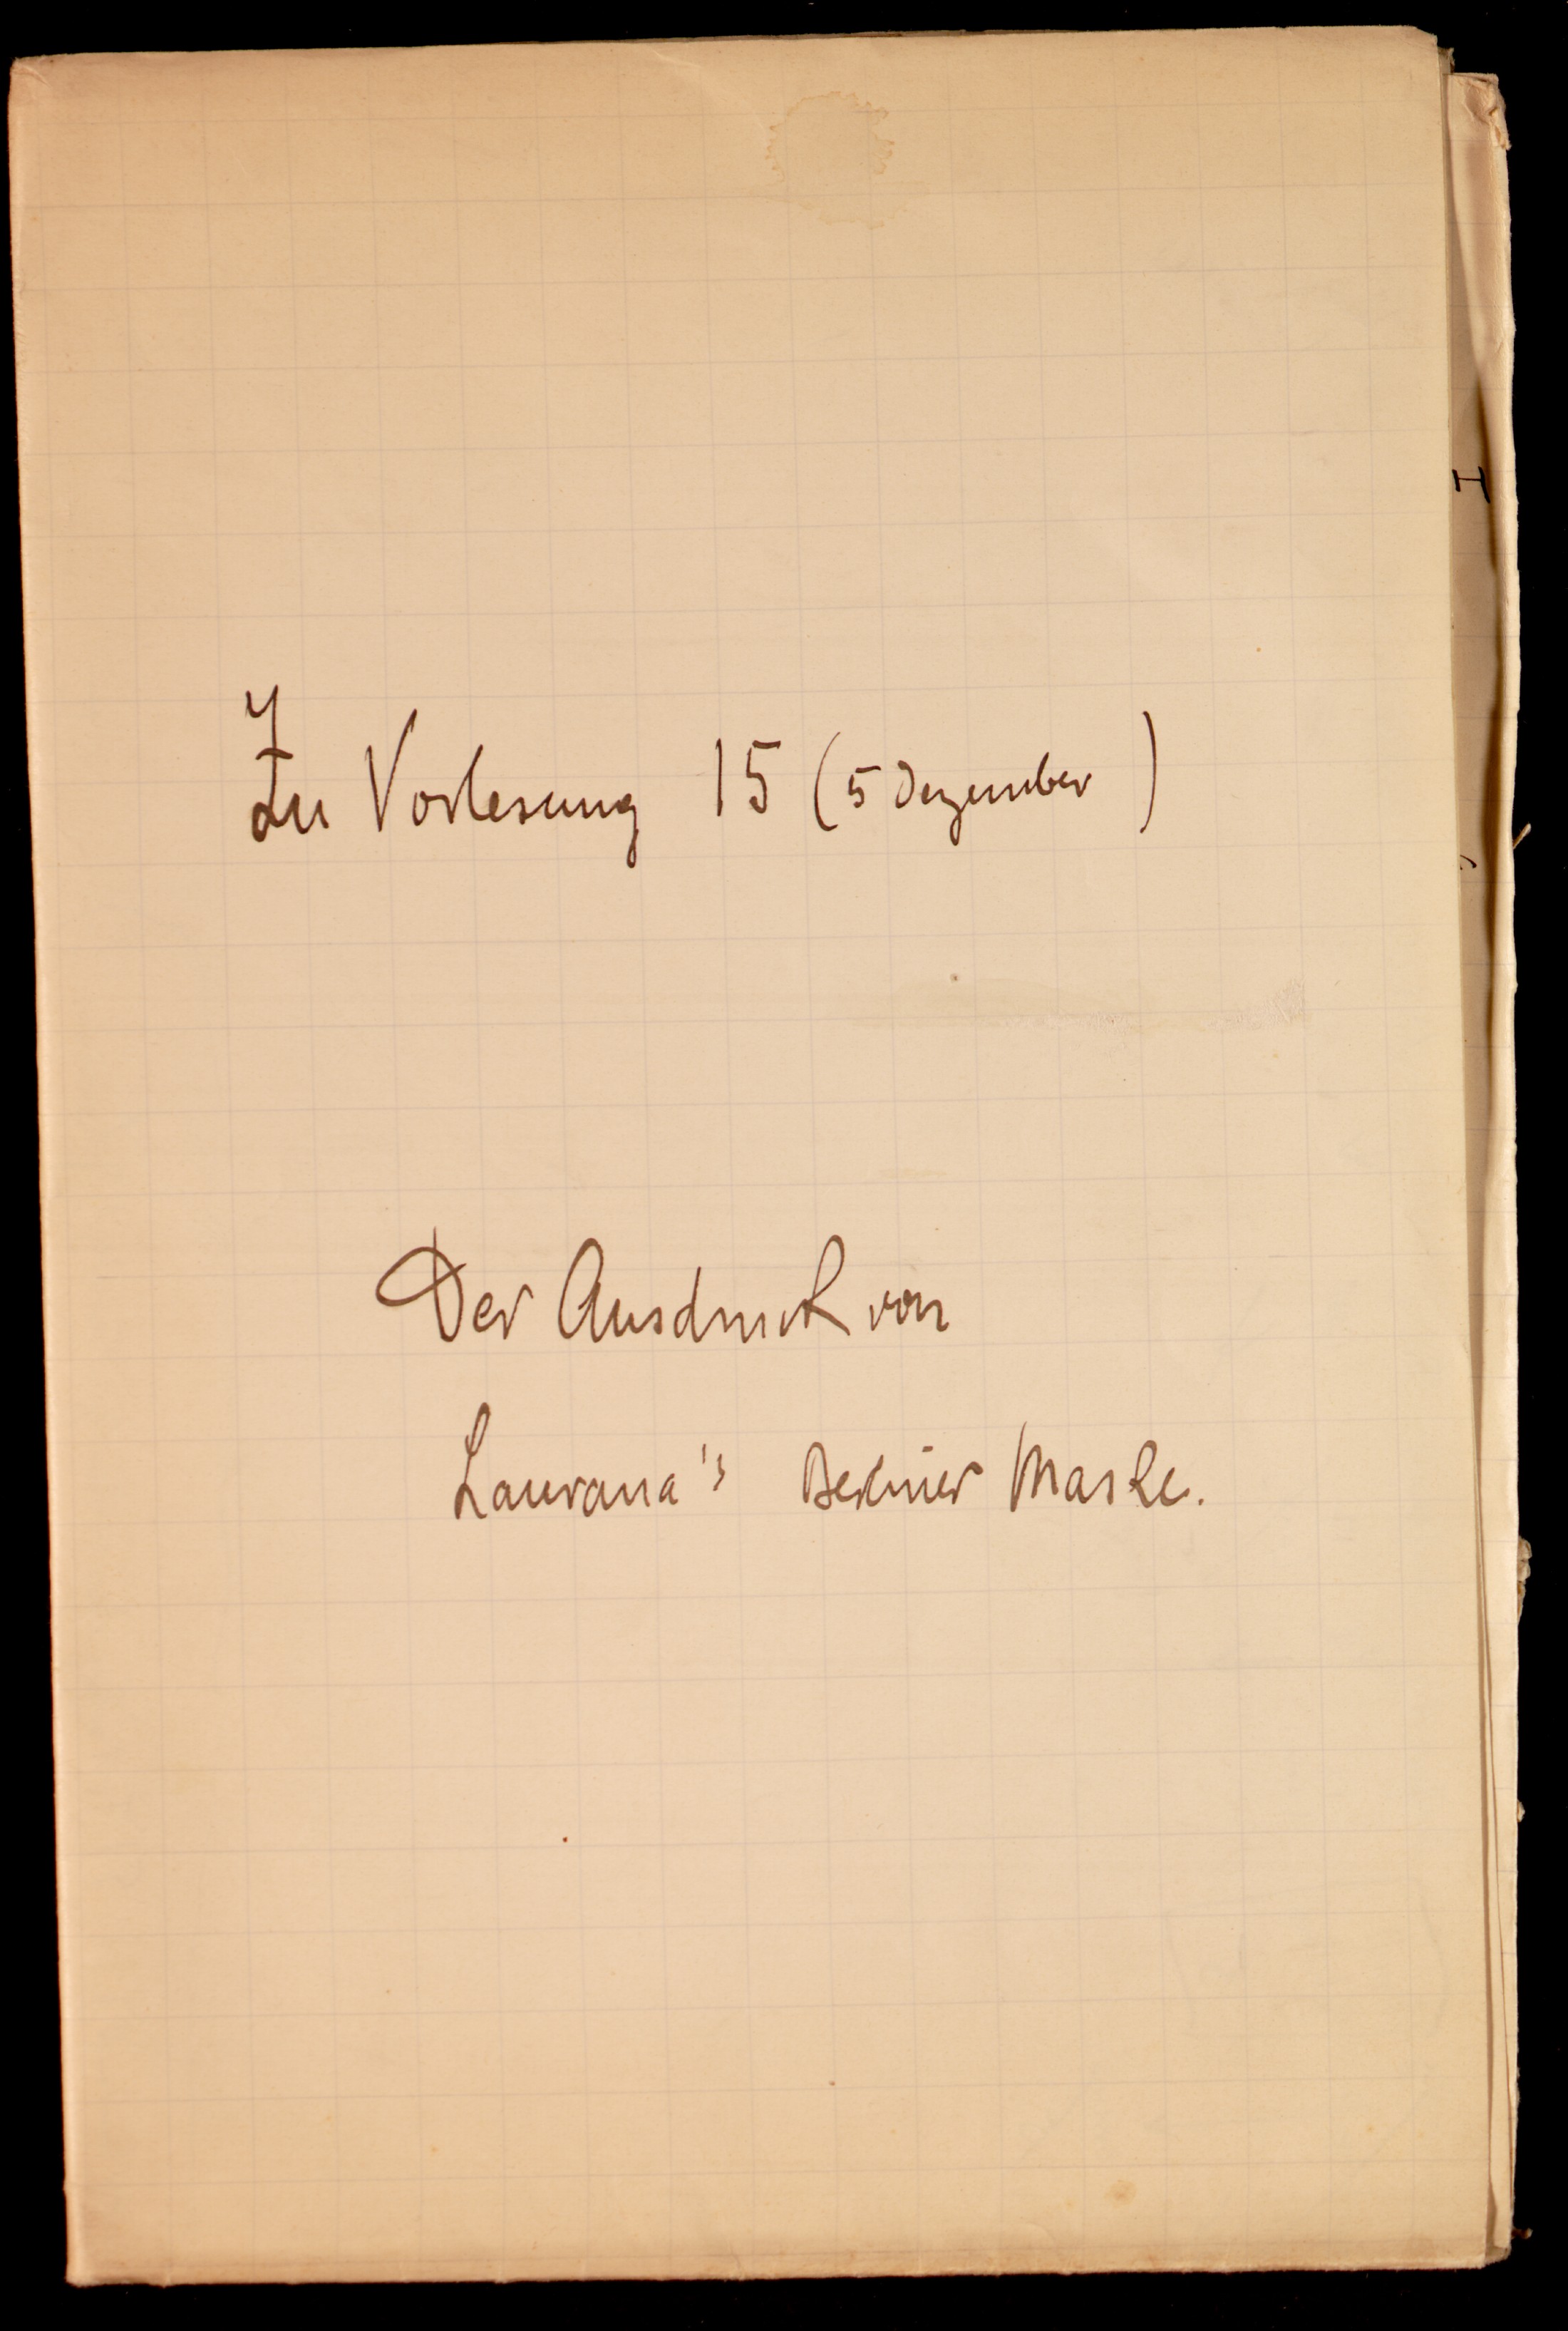 Zu Vorlesung 15 (5 Dezember)
Der Ausdruck von
Laurana's Berliner Maske.